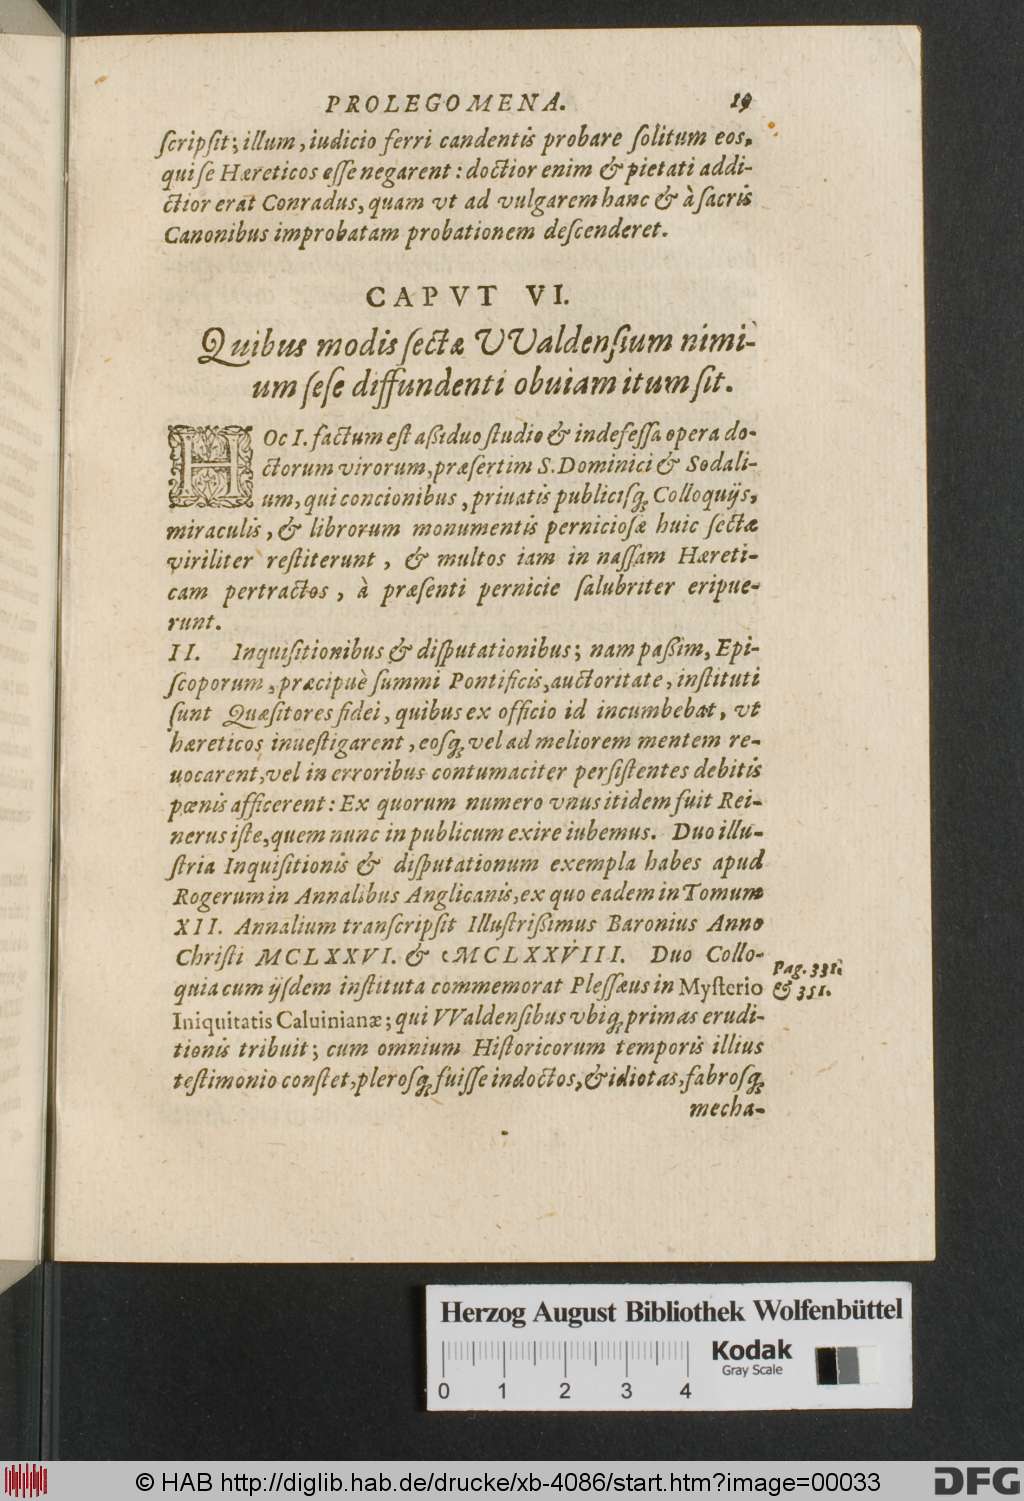 PROLEGOMENA. 19
ſcripſit; illum, iudicio ferri candentis probare ſolitum eos,
qui ſe Hæreticos eſſe negarent: doctior enim & pietati addi-
ctior erat Conradus, quam vt ad vulgarem hanc & à ſacris
Canonibus improbatam probationem deſcenderet.
CAPVT VI.
Quibus modis ſectæ VValdenſium nimi-
um ſeſe diffundenti obuiam itum ſit.
HOc I. factum eſt aßiduo ſtudio & indefeſſa opera do-
ctorum virorum, præſertim S. Dominici & Sodali-
um, qui concionibus, priuatis publicisq́; Colloquijs,
miraculis, & librorum monumentis pernicioſæ huic ſectæ
viriliter reſtiterunt, & multos iam in naſſam Hæreti-
cam pertractos, à præſenti pernicie ſalubriter eripue-
runt.
II. Inquiſitionibus & diſputationibus; nam paßim, Epi-
ſcoporum, præcipuè ſummi Pontificis, auctoritate, inſtituti
ſunt Quæſitores fidei, quibus ex officio id incumbebat, vt
hæreticos inueſtigarent, eoſq́; vel ad meliorem mentem re-
uocarent, vel in erroribus contumaciter perſiſtentes debitis
pœnis afficerent: Ex quorum numero vnus itidem fuit Rei-
nerus iſte, quem nunc in publicum exire iubemus. Duo illu-
ſtria Inquiſitionis & diſputationum exempla habes apud
Rogerum in Annalibus Anglicanis, ex quo eadem in Tomum
XII. Annalium tranſcripſit Illuſtrißimus Baronius Anno
Chriſti MCLXXVI. & MCLXXVIII. Duo Collo-
quia cum ijſdem inſtituta commemorat Pleſſæus in Myſterio
Pag. 331.
& 351.
Iniquitatis Caluinianæ; qui VValdenſibus vbiq́; primas erudi-
tionis tribuit; cum omnium Hiſtoricorum temporis illius
teſtimonio conſtet, pleroſq́; fuiſſe indoctos, & idiotas, fabroſq́;
mecha-
Herzog August Bibliothek Wolfenbüttel
Kodak
Gray Scale
0 1 2 3 4
© HAB http://diglib.hab.de/drucke/xb-4086/start.htm?image=00033
DFG